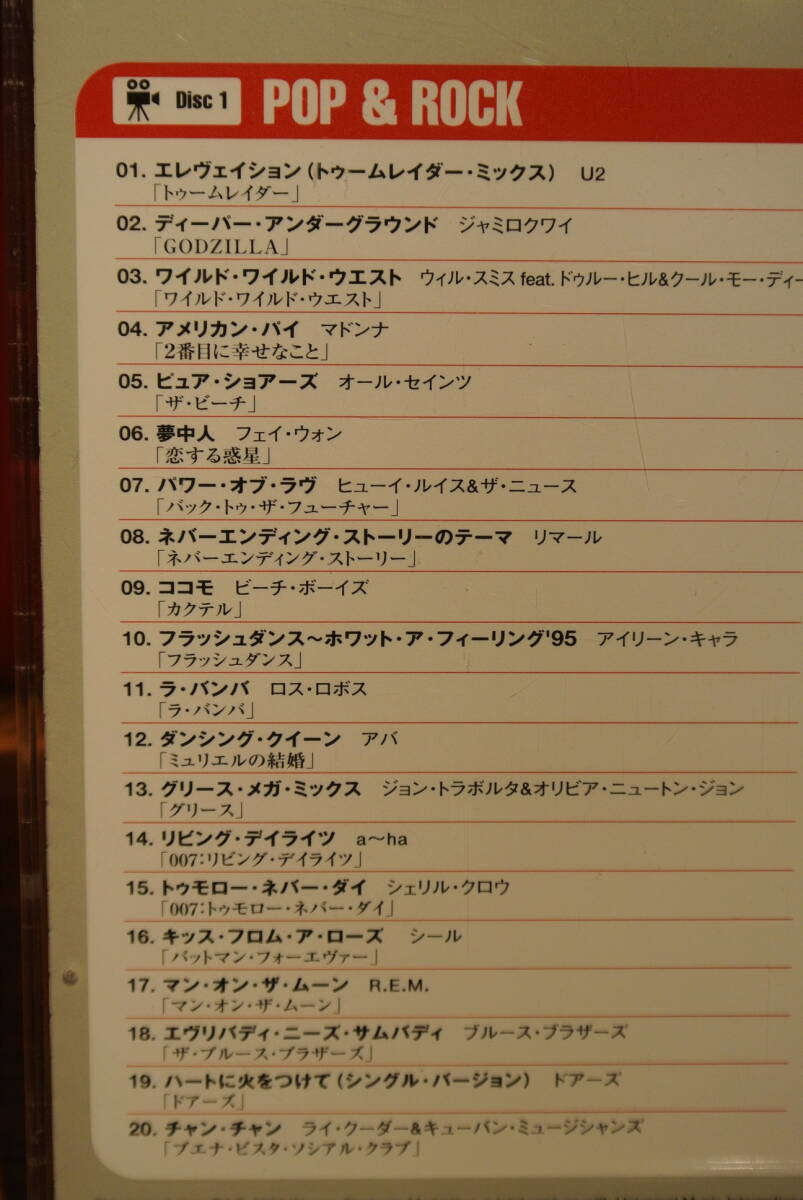 Disc 1 POP & ROCK
01. エレヴェイション(トゥームレイダー・ミックス) U2
「トゥームレイダー」
02. ディーパー・アンダーグラウンド ジャミロクワイ
「GODZILLA」
03. ワイルド・ワイルド・ウエスト ウィル・スミス feat. ドゥルー・ヒル&クール・モー・ディー
「ワイルド・ワイルド・ウエスト」
04. アメリカン・パイ マドンナ
「2番目に幸せなこと」
05. ピュア・ショアーズ オール・セインツ
「ザ・ビーチ」
06. 夢中人 フェイ・ウォン
「恋する惑星」
07. パワー・オブ・ラヴ ヒューイ・ルイス&ザ・ニュース
「バック・トゥ・ザ・フューチャー」
08. ネバーエンディング・ストーリーのテーマ リマール
「ネバーエンディング・ストーリー」
09. ココモ ビーチ・ボーイズ
「カクテル」
10. フラッシュダンス〜ホワット・ア・フィーリング'95 アイリーン・キャラ
「フラッシュダンス」
11. ラ・バンバ ロス・ロボス
「ラ・バンバ」
12. ダンシング・クイーン アバ
「ミュリエルの結婚」
13. グリース・メガ・ミックス ジョン・トラボルタ&オリビア・ニュートン・ジョン
「グリース」
14. リビング・デイライツ a〜ha
「007:リビング・デイライツ」
15. トゥモロー・ネバー・ダイ シェリル・クロウ
「007:トゥモロー・ネバー・ダイ」
16. キッス・フロム・ア・ローズ シール
「バットマン・フォーエヴァー」
17. マン・オン・ザ・ムーン R.E.M.
「マン・オン・ザ・ムーン」
18. エヴリバディ・ニーズ・サムバディ ブルース・ブラザーズ
「ザ・ブルース・ブラザーズ」
19. ハートに火をつけて(シングル・バージョン) ドアーズ
「ドアーズ」
20. チャン・チャン ライ・クーダー&キューバン・ミュージシャンズ
「ブエナ・ビスタ・ソシアル・クラブ」